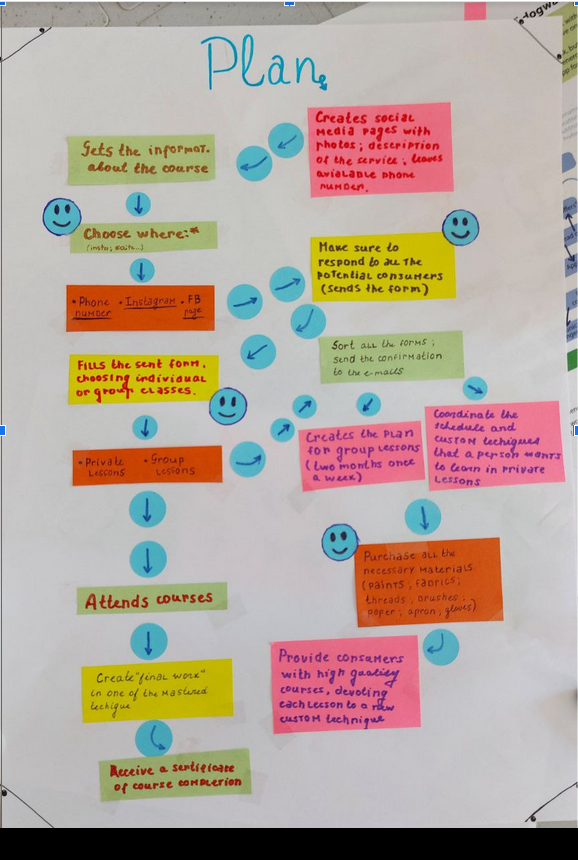 Plan
Gets the informat.
about the course
Creates social
media pages with
photos; description
of the service; leaves
avialable phone
number.
Choose where:*
(insta; saite...)
Make sure to
respond to all the
potential consumers
(sends the form)
• Phone
number
• Instagram
• FB
page
Sort all the forms;
send the confirmation
to the e-mails
Fills the sent form,
choosing individual
or group classes.
Creates the plan
for group lessons
(two months once
a week)
Coordinate the
schedule and
custom techiques
that a person wants
to learn in private
lessons
• Private
Lessons
• Group
Lessons
Purchase all the
necessary materials
(paints, fabrics;
threads, brushes,
paper, apron, gloves)
Attends courses
Provide consumers
with high quality
courses, devoting
each lesson to a
custom technique
Create "final work"
in one of the mastered
techique
Receive a sertificate
of course completion